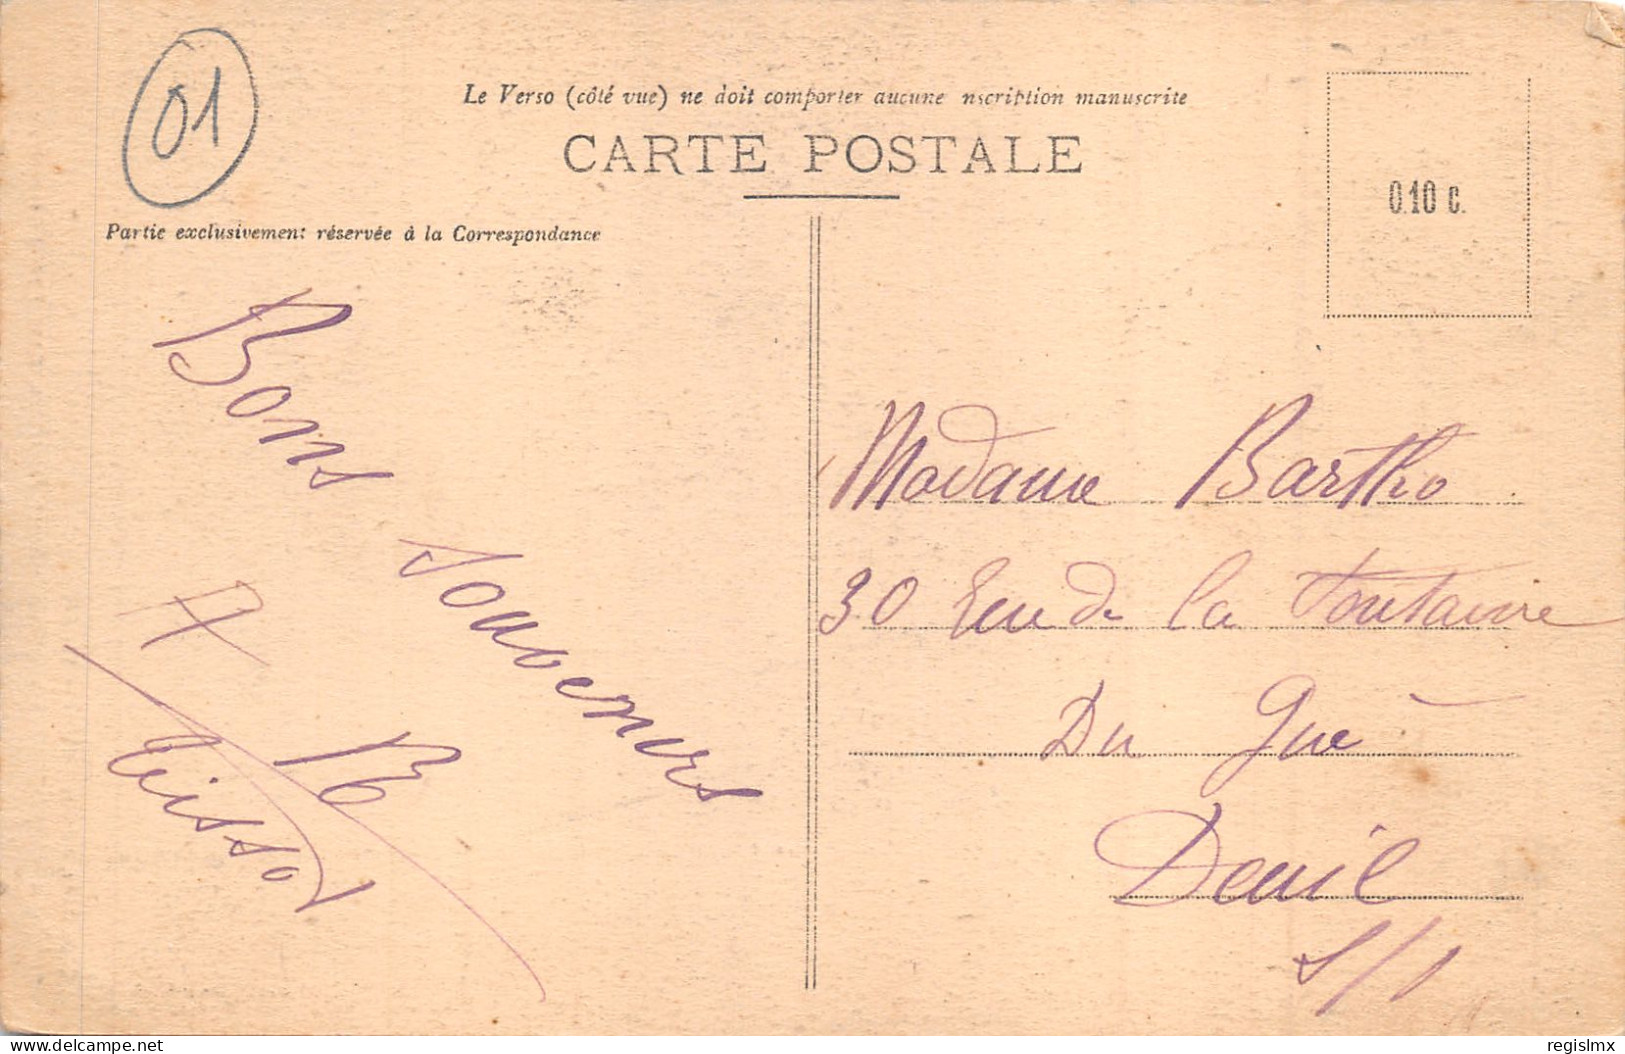 01
Le Verso (côté vue) ne doit comporter aucune nscription manuscrite
CARTE POSTALE
0.10 c.
Partie exclusivement réservée à la Correspondance
Bons
souvenirs
Madame Bartho
30 Rue de la Fontaine
Du Gué
Deuil
S/
delcampe.net
regislmx